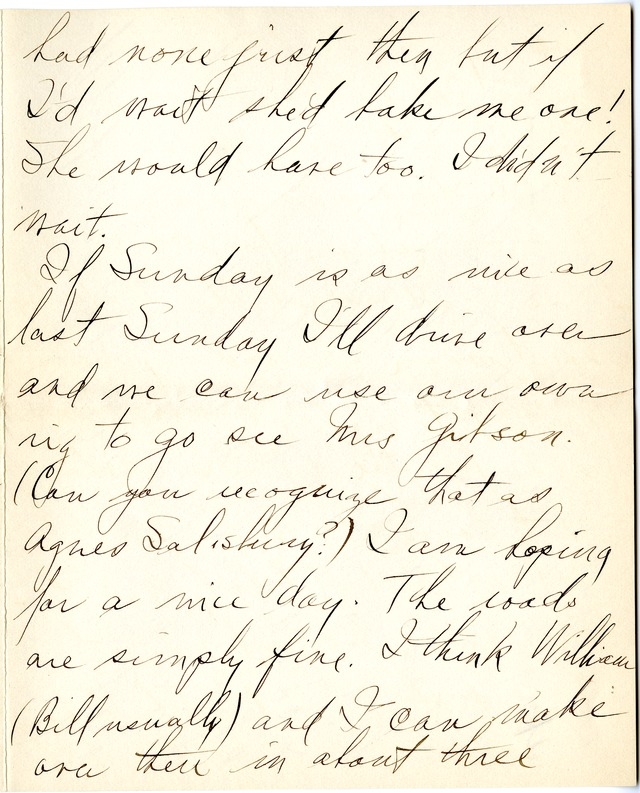 had none just then but if
I'd wait she'd bake me one!
She would have too. I didn't
wait.
If Sunday is as nice as
last Sunday I'll drive over
and we can use our own
rig to go see Mrs Gibson.
(Can you recognize that as
Agnes Salisbury?) I am hoping
for a nice day. The roads
are simply fine. I think William
(Bill usually) and I can make
over there in about three